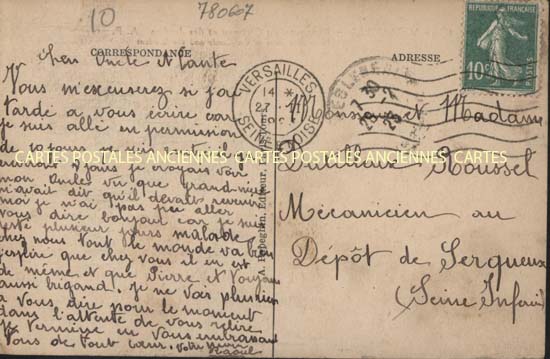 10
780607
CORRESPONDANCE
ADRESSE
REPUBLIQUE FRANÇAISE
10c
VERSAILLES
SEINE-ET-OISE
14 *
27
Cher Oncle et Tante
Vous m'excuserez si j'ai
tardé a vous écrire car
je suis allé en permission
de 
jours je croyais voir
mon oncle vu que grand-mère
m'avait dit qu'il devait revenir
moi je n'ai pas pu aller
vous dire bonjour car je suis
resté plusieur jours malade
chez nous tout le monde va bien
j'espère que chez vous il en est
de même et que Pierre et
aussi . je ne vais plus rien
a vous dire pour le moment
dans l'attente de vous relire
je termine en vous embrassant
tous de tout cœur. votre neveu
Raoul
Monsieur et Madame
Dutilleux Rousset
Mécanicien au
Dépôt de Serqueux
(Seine Infre)
Editeur
CARTES POSTALES ANCIENNES CARTES POSTALES ANCIENNES CARTES